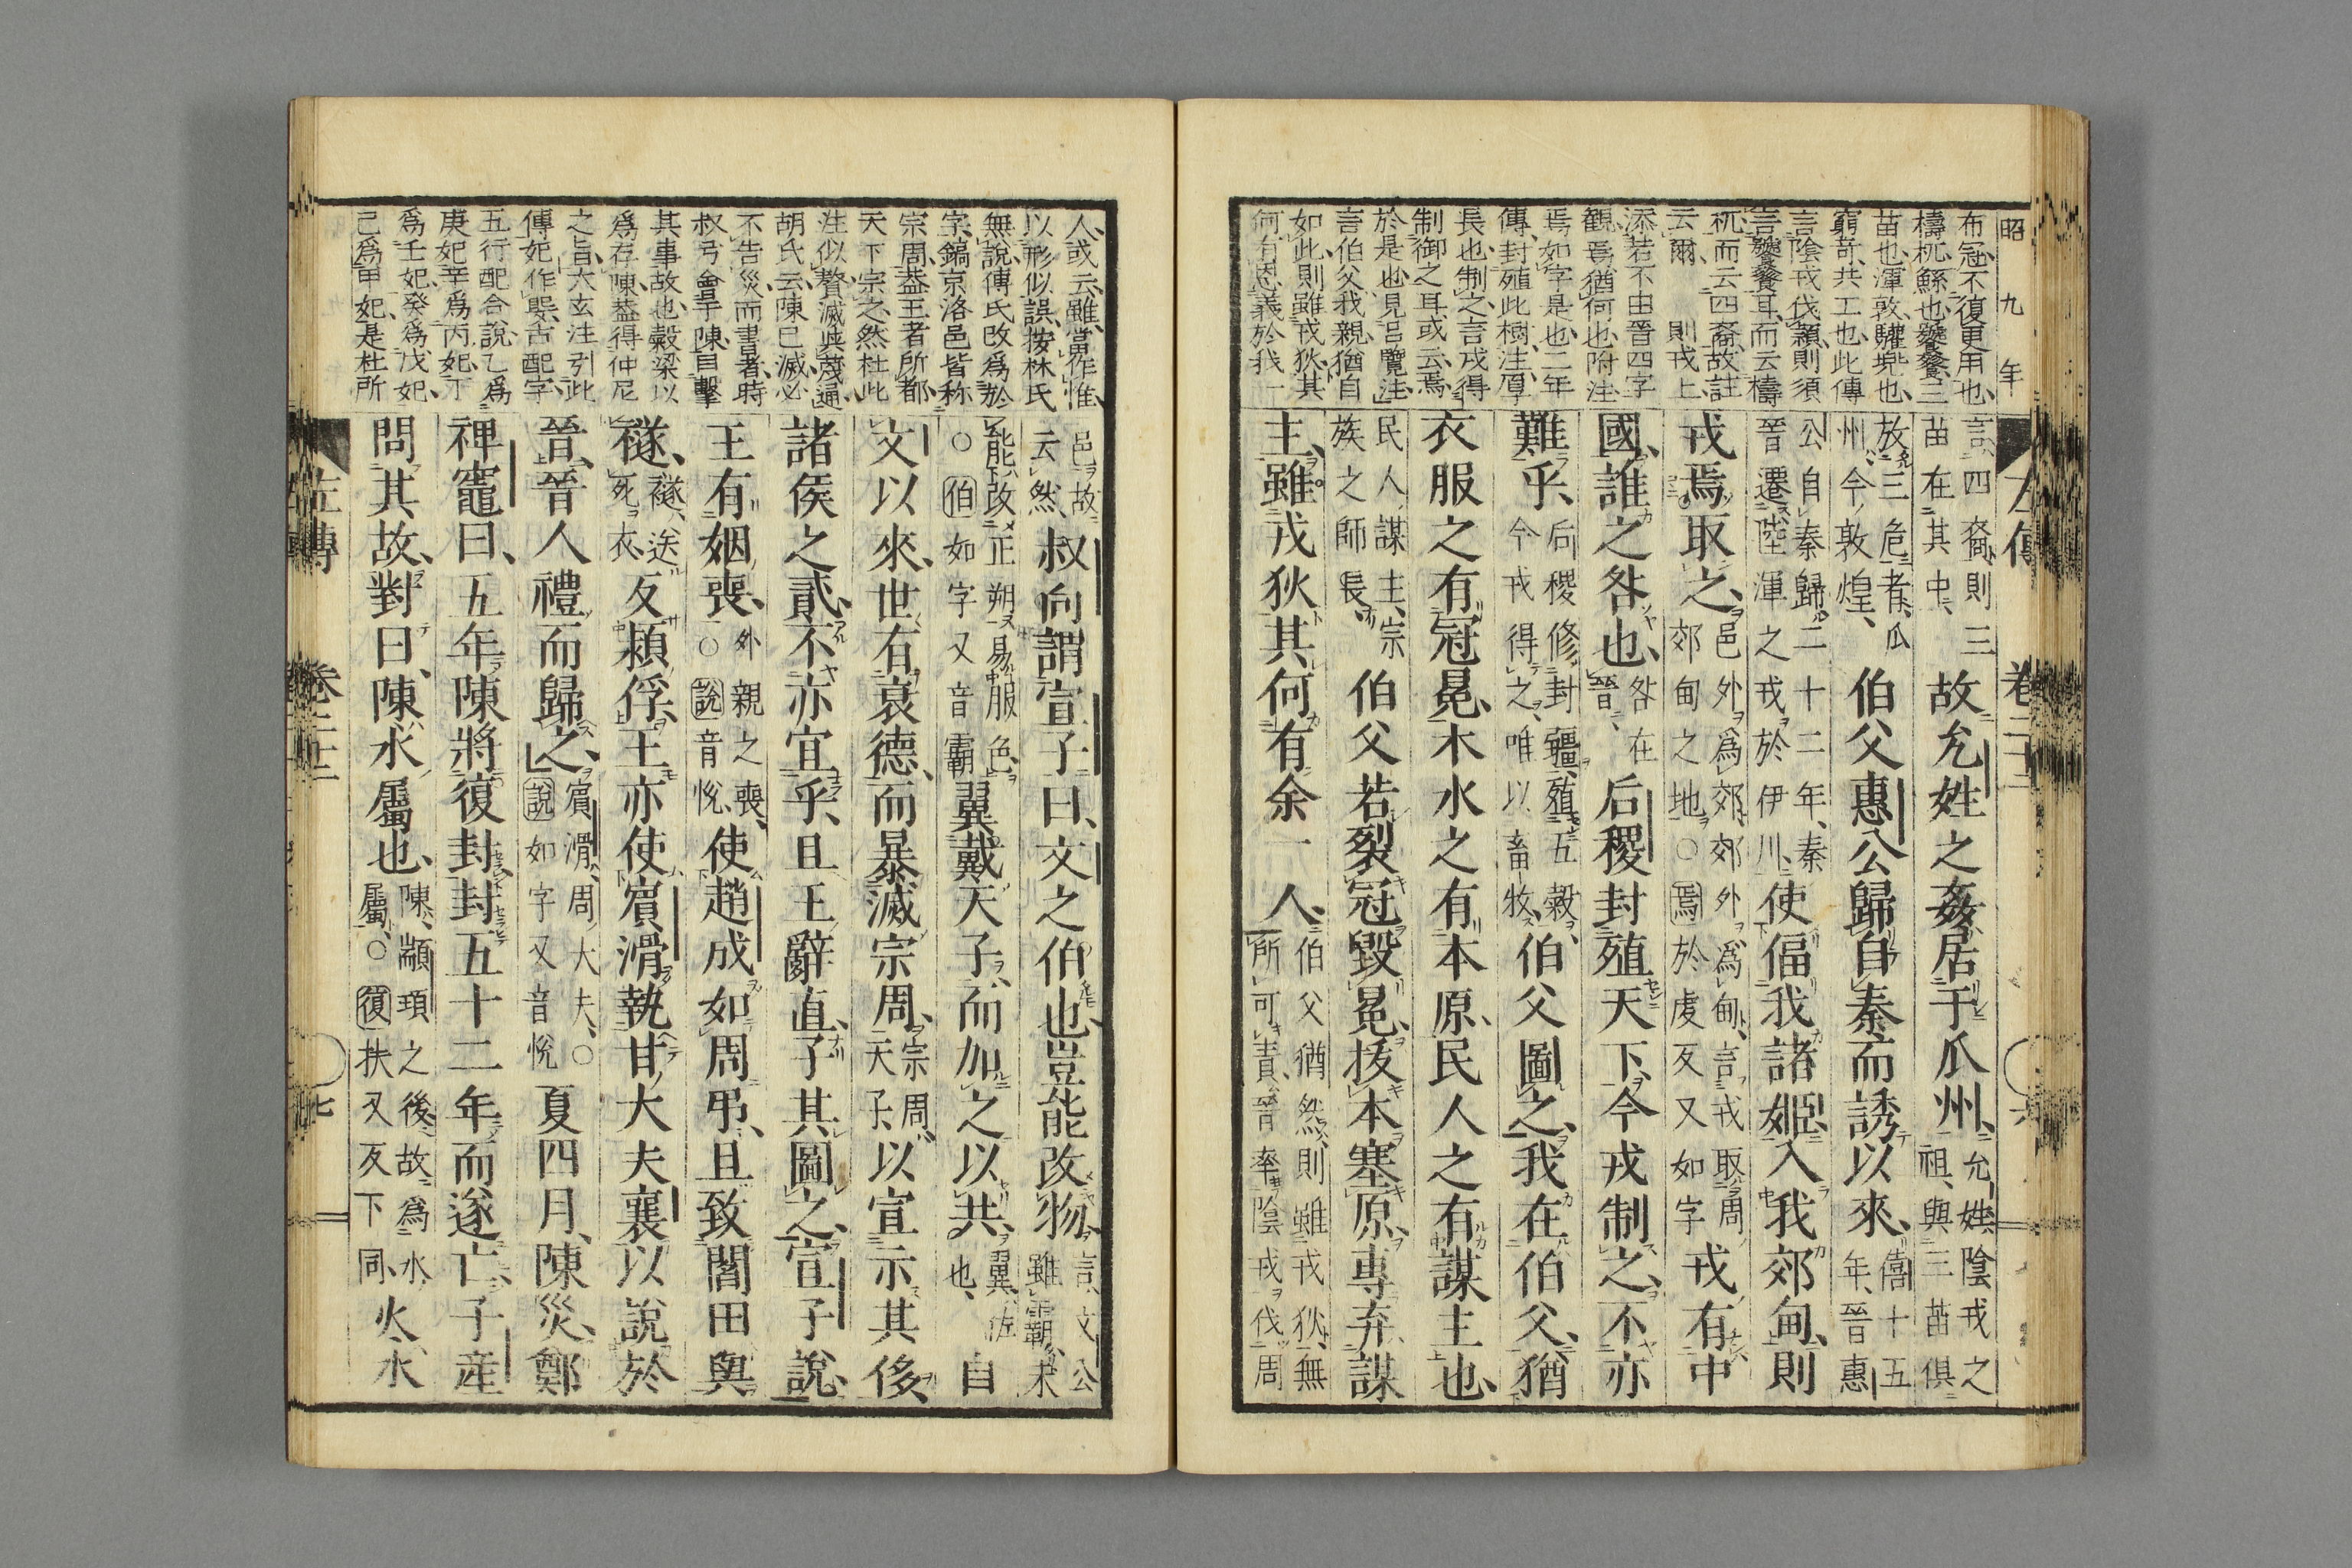 昭九年
布冠不復更用也
檮杌鯀也饕餮三
苗也渾敦驩兜也
窮奇共工也此傳
言陰戎伐頴則須
言饕餮耳而云檮
杌而云四裔故註
云爾　則戎上
添若不由晋四字
觀焉猶何也附注
焉如字是也二年
傳封殖此樹注厚
長也制之言戎得
制御之耳或云焉
於是也見呂覽注
言伯父我親猶自
如此則雖戎狄其
何有恩義於我一
言四裔則三苗在其中故允姓之姦居于瓜州允姓陰戎之祖與三苗俱
放三危者瓜州今敦煌伯父惠公歸自秦而誘以來僖十五年晉惠
公自秦歸二十二年秦晉遷陸渾之戎於伊川使偪我諸姬入我郊甸則
戎焉取之邑外爲郊郊外爲甸言戎取周郊甸之地○焉於虔反又如字戎有中
國誰之咎也咎在晉后稷封殖天下今戎制之不亦
難乎后稷修封疆殖五穀今戎得之唯以畜牧伯父圖之我在伯父猶
衣服之有冠冕木水之有本原民人之有謀主也
民人謀主宗族之師長伯父若裂冠毀冕拔本塞原專弃謀
主雖戎狄其何有余一人伯父猶然則雖戎狄無所可責晉率陰戎伐周
人或云雖當作惟
以形似誤按林氏
無說傳氏改爲於
字鎬京洛邑皆称
宗周蓋王者所都
天下宗之然杜此
注似贅滅與蔑通
胡氏云陳已滅必
不告災而書者時
叔弓會于陳目擊
其事故也穀梁以
爲存陳蓋得仲尼
之旨大玄注引此
傳妃作娶古配字
五行配合説乙爲
庚妃辛爲丙妃丁
爲壬妃癸爲戊妃
己爲甲妃是杜所
邑故云然叔向謂宣子曰文之伯也豈能改物言文公雖霸未
能改正朔易服色○伯如字又音霸翼戴天子而加之以共翼佐也自
文以來世有衰德而暴滅宗周宗周天子以宣示其侈
諸侯之貳不亦宜乎且王辭直子其圖之宣子說
王有姻喪外親之喪○說音悅使趙成如周弔且致閻田與
襚襚送死衣反頴俘王亦使賓滑執甘大夫襄以說於
晉晉人禮而歸之賓滑周大夫○說如字又音悅夏四月陳災鄭
裨竈曰五年陳將復封封五十二年而遂亡子產
問其故對曰陳水屬也陳顓頊之後故爲水屬○復扶又反下同火水
左傳　卷二十二　七